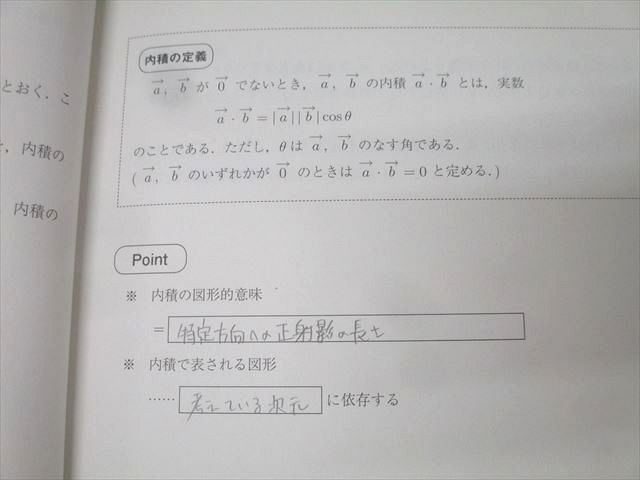 とおく．こ
，内積の
内積の
内積の定義
a⃗，b⃗ が 0⃗ でないとき，a⃗，b⃗ の内積 a⃗・b⃗ とは，実数
a⃗・b⃗ = |a⃗||b⃗|cosθ
のことである．ただし，θ は a⃗，b⃗ のなす角である．
( a⃗，b⃗ のいずれかが 0⃗ のときは a⃗・b⃗ = 0 と定める．)
Point
※ 内積の図形的意味
= 特定方向への正射影の長さ
※ 内積で表される図形
…… 考えている次元 に依存する